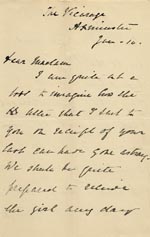 The Vicarage
Axminster
Jan. 10.
Dear Madam
I am quite at a
loss to imagine how the
letter that I sent to
you on receipt of your
last can have gone astray.
We should be quite
prepared to receive
the girl any day